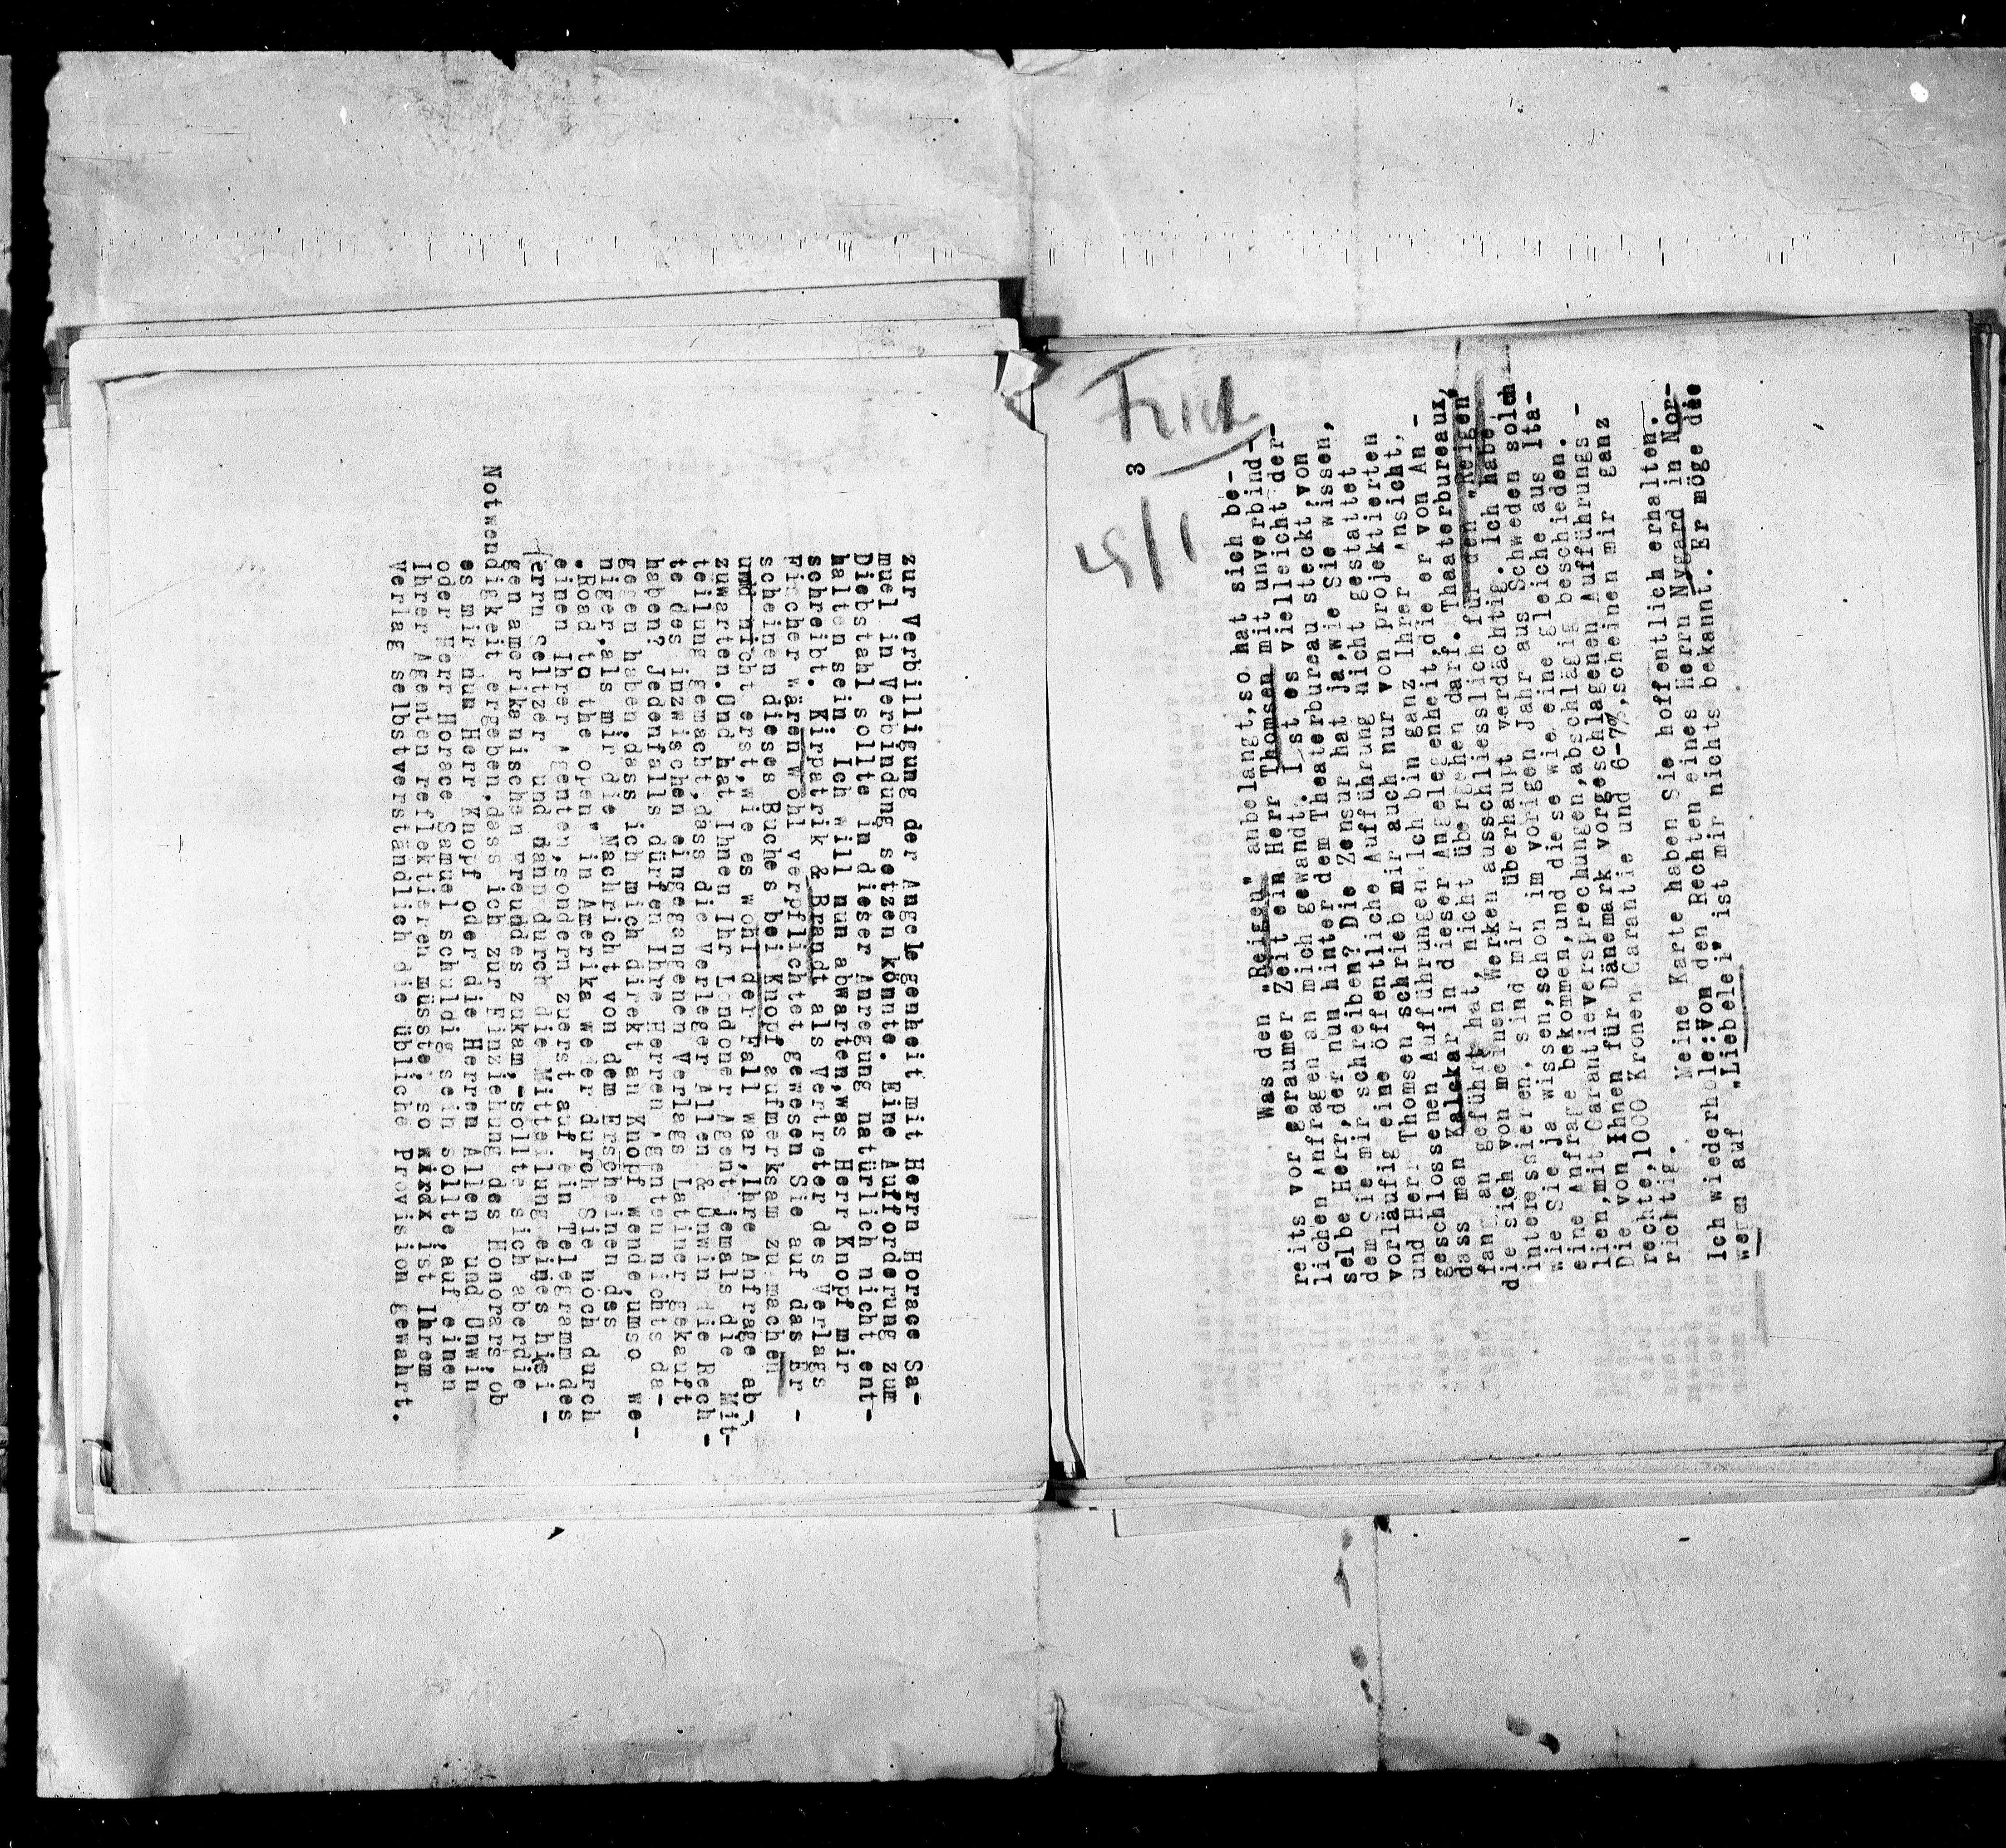 zur Verbilligung der Angelegenheit mit Herrn Horace Sa-
muel in Verbindung setzen könnte. Eine Aufforderung zum
Diebstahl sollte in dieser Anregung natürlich nicht ent-
halten sein. Ich will nun abwarten, was Herr Knopf mir
schreibt. Kirpatrik & Brandt als Vertreter des Verlags
Fischer wären wohl verpflichtet gewesen Sie auf das Er-
scheinen dieses Buches bei Knopf aufmerksam zu machen
und nicht erst, wie es wohl der Fall war, Ihre Anfrage ab-
zuwarten. Und hat Ihnen Ihr Londoner Agent jemals die Mit-
teilung gemacht, dass die Verleger Allen & Unwin die Rech-
te des inzwischen eingegangenen Verlags Latiner gekauft
haben? Jedenfalls dürfen Ihre Herren Agenten nichts da-
gegen haben, dass ich mich direkt an Knopf wende, umso we-
niger, als mir die Nachricht von dem Erscheinen des
"Road to the open" in Amerika weder durch Sie noch durch
einen Ihrer Agenten, sondern zuerst auf ein Telegramm des
Herrn Seltzer und dann durch die Mitteilung eines hisi-
gen amerikanischen Freundes zukam, - sollte sich aber die
Notwendigkeit ergeben, dass ich zur Einziehung des Honorars, ob
es mir nun Herr Knopf oder die Herren Allen und Unwin
oder Herr Horace Samuel schuldig sein sollte, auf einen
Ihrer Agenten reflektieren müsste, so wird ist Ihrem
Verlag selbstverständlich die übliche Provision gewahrt.
3
Was den "Reigen" anbelangt, so hat sich be-
reits vor geraumer Zeit ein Herr Thomsen mit unverbind-
lichen Anfragen an mich gewandt. Ist es vielleicht der-
selbe Herr, der nun hinter dem Theaterbureau steckt, von
dem Sie mir schreiben? Die Zensur hat ja, wie Sie wissen,
vorläufig eine öffentliche Aufführung nicht gestattet
und Herr Thomsen schrieb mir auch nur von projektierten
geschlossenen Aufführungen. Ich bin ganz Ihrer Ansicht,
dass man Kalckar in dieser Angelegenheit, die er von An-
fang an geführt hat, nicht übergehen darf. Theaterbureaux,
die sich von meinen Werken ausschliesslich für den "Reigen"
interessieren, sind mir überhaupt verdächtig. Ich habe
wie Sie ja wissen, schon im vorigen Jahr aus Schweden solch
eine Anfrage bekommen, und diese wie eine gleiche aus Ita-
lien, mit Garantieversprechungen, abschlägig beschieden.
Die von Ihnen für Dänemark vorgeschlagenen Aufführungs-
rechte, 1000 Kronen Garantie und 6-7%, scheinen mir ganz
richtig.
Meine Karte haben Sie hoffentlich erhalten.
Ich wiederhole: Von den Rechten eines Herrn Nygard in Nor-
wegen auf "Liebelei" ist mir nichts bekannt. Er möge die